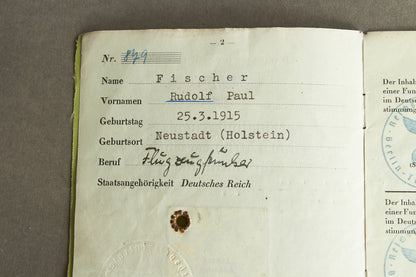 – 2 –
Nr. 849
Name Fischer
Vornamen Rudolf Paul
Geburtstag 25.3.1915
Geburtsort Neustadt (Holstein)
Beruf Flugzeugfunker
Staatsangehörigkeit Deutsches Reich
Der Inhab
einer Fun
im Deutsch
stimmung
Der Inhab
einer Fun
im Deuts
stimmun